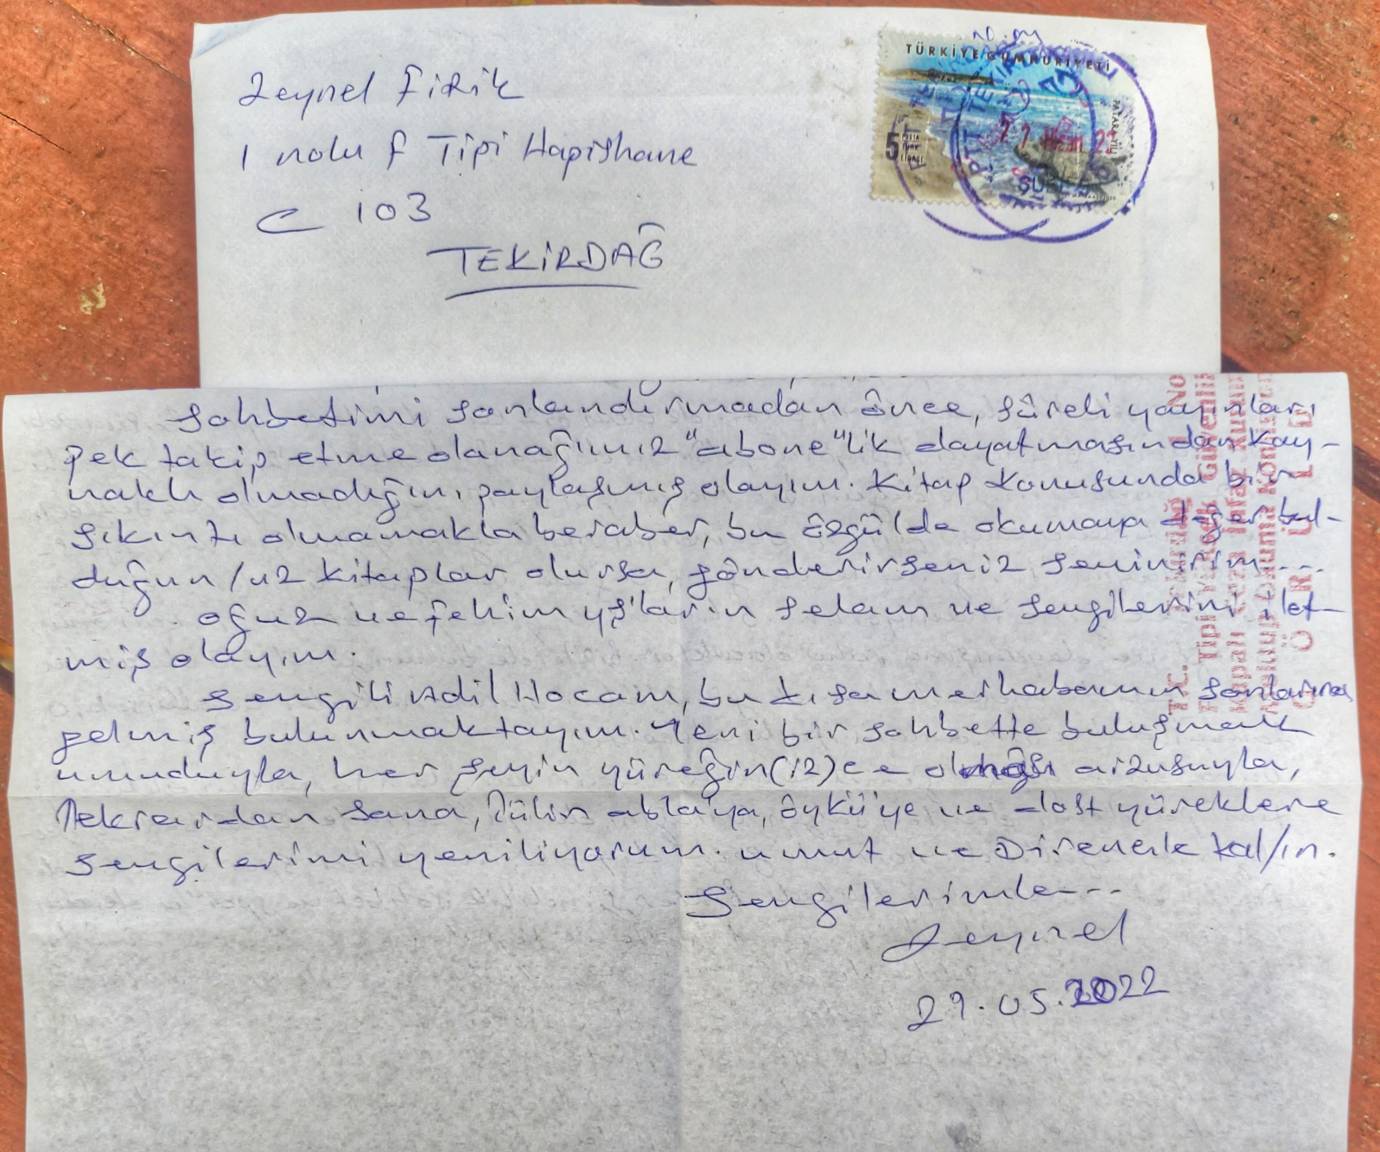 Zeynel Firik
1 nolu F Tipi Hapishane
C 103
TEKİRDAĞ
TÜRKİYE CUMHURİYETİ
5
Sohbetimi sonlandırmadan önce, süreli yayınları
pek takip etme olanağımız "abone"lik dayatmasından kay-
naklı olmadığını paylaşmış olayım. Kitap konusunda bir
sıkıntı olmamakla beraber, bu özgülde okumaya değer bul-
duğun/uz kitaplar olursa, gönderirseniz sevinirim....
Oğuz ve Fehim yş'ların selam ve sevgilerini ilet-
miş olayım.
Sevgili Adil Hocam, bu kısa merhabamın sonlarına
gelmiş bulunmaktayım. Yeni bir sohbette buluşmak
umuduyla, her şeyin yüreğin(iz)ce olması arzusuyla,
Tekrardan sana, Tülin abla'ya, Öykü'ye ve dost yüreklere
sevgilerimi yeniliyorum. Umut ve Dirençle kal/ın.
Sevgilerimle...
Zeynel
29.05.2022
T.C.
F Tipi Yüksek Güvenlik
Kapalı Ceza İnfaz Kurum
Mektup Okuma Komisyonu
GÖRÜLDÜ